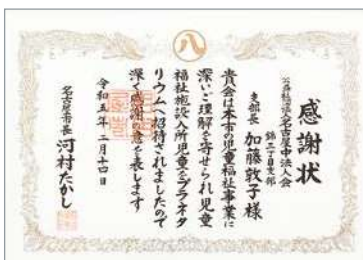 感謝状
公益社団法人名古屋中法人会
錦三丁目支部
支部長 加藤敦子様
貴会は本市の児童福祉事業に
深いご理解を寄せられ児童
福祉施設入所児童をプラネタ
リウムへ招待されましたので
深く感謝の意を表します
令和五年二月十四日
名古屋市長 河村たかし